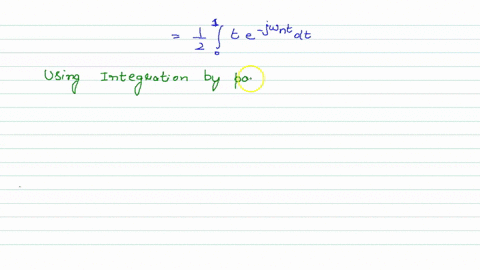 = 1/2 ∫₀¹ t e^{-jωnt} dt
Using Integration by pa